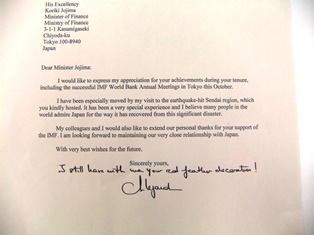 His Excellency
Koriki Jojima
Minister of Finance
Ministry of Finance
3-1-1 Kasumigaseki
Chiyoda-ku
Tokyo 100-8940
Japan
Dear Minister Jojima:
I would like to express my appreciation for your achievements during your tenure,
including the successful IMF World Bank Annual Meetings in Tokyo this October.
I have been especially moved by my visit to the earthquake-hit Sendai region, which
you kindly hosted. It has been a very special experience and I believe many people in the
world admire Japan for the way it has recovered from this significant disaster.
My colleagues and I would also like to extend our personal thanks for your support of
the IMF. I am looking forward to maintaining our very close relationship with Japan.
With very best wishes for the future.
Sincerely yours,
I still have with me your red feather decoration!